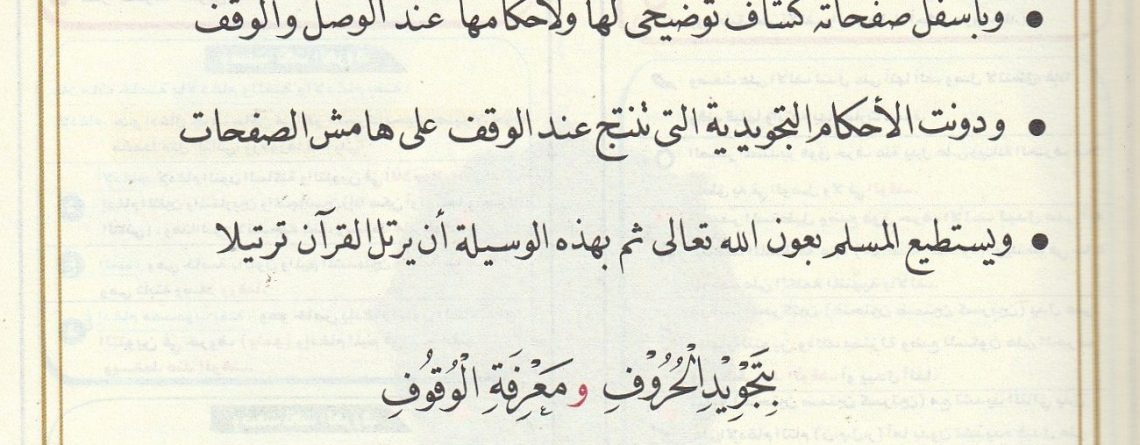 وبأسفل صفحاته كشاف توضيحي لها ولأحكامها عند الوصل والوقف
ودونت الأحكام التجويدية التي تنتج عند الوقف على هامش الصفحات
ويستطيع المسلم بعون الله تعالى ثم بهذه الوسيلة أن يرتل القرآن ترتيلا
بِتَجْوِيْدِ الْحُرُوْفِ و مَعْرِفَةِ الْوُقُوُفِ